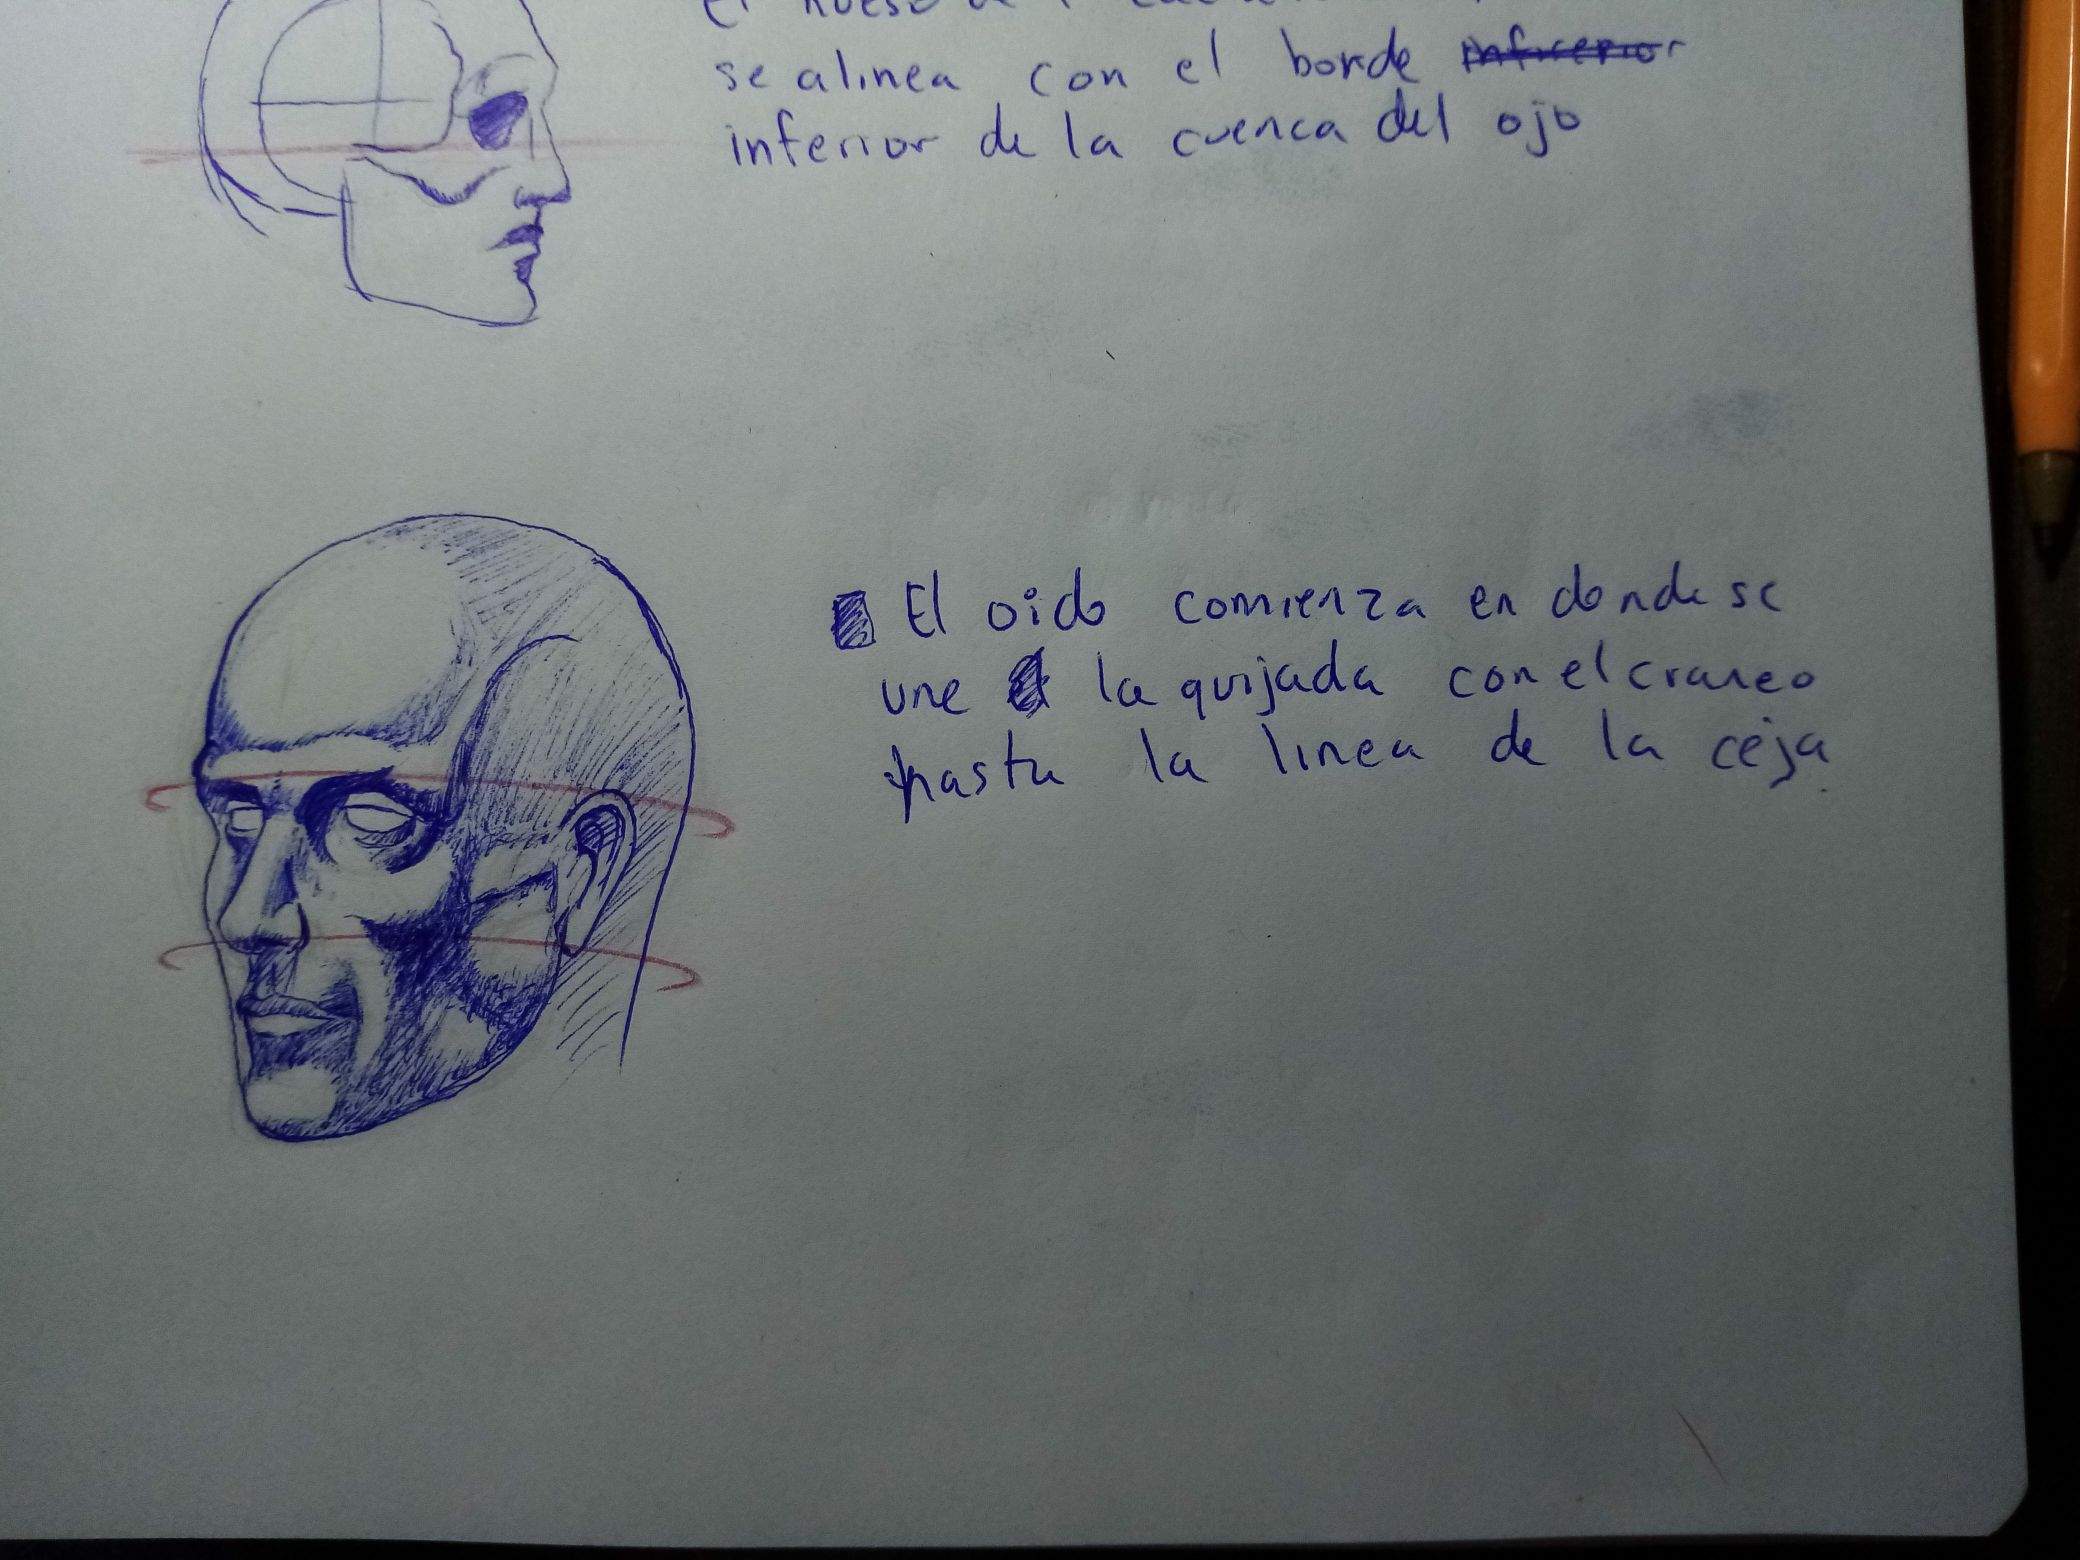 se alinea con el borde
inferior de la cuenca del ojo
El oido comienza en donde se
une la quijada con el craneo
hasta la linea de la ceja